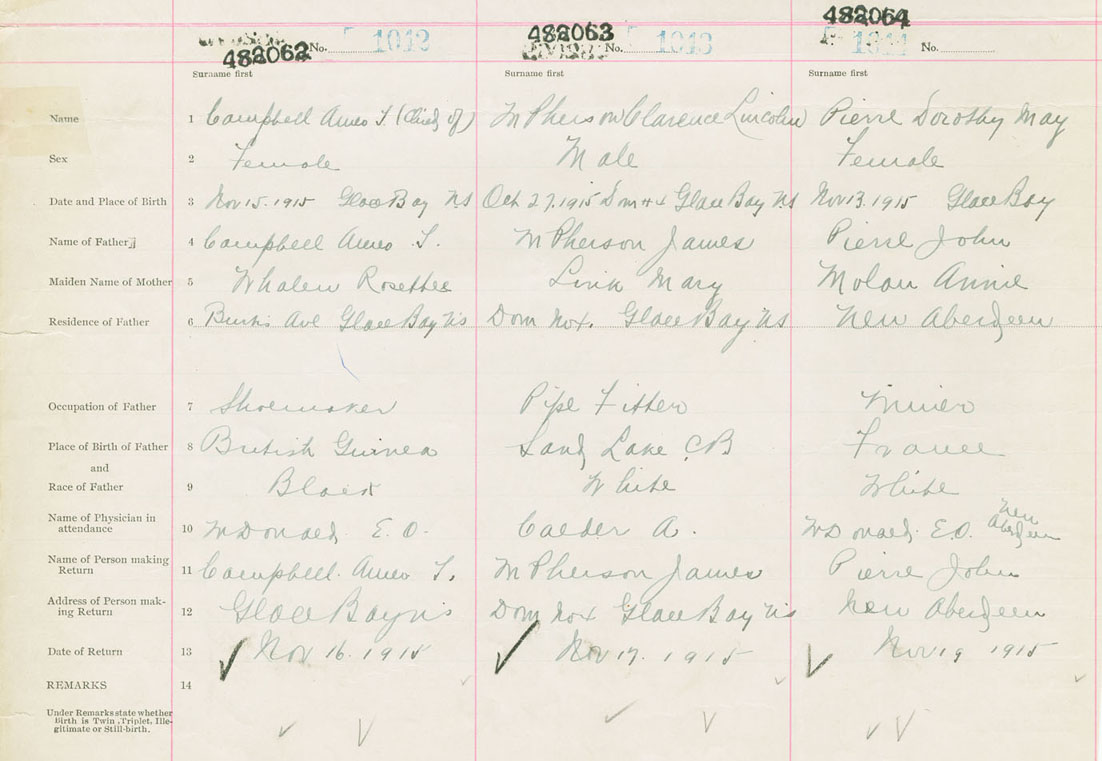 482062 No. 1012 482063 No. 1013 482064 1014 No.
Surname first Surname first Surname first
Name 1 Campbell Ameo T. (Child of) McPherson Clarence Lincoln Pierre Dorothy May
Sex 2 Female Male Female
Date and Place of Birth 3 Nov 15. 1915 Glace Bay NS Oct 27. 1915 Dom # 4 Glace Bay NS Nov 13. 1915 Glace Bay
Name of Father 4 Campbell Ameo T. McPherson James Pierre John
Maiden Name of Mother 5 Whalen Mary Molan Annie
Residence of Father 6 Ave Glace Bay NS Dom No 4. Glace Bay NS New Aberdeen
Occupation of Father 7 Shoemaker Pipe Fitter Miner
Place of Birth of Father 8 British Guinea Lake CB France
and
Race of Father 9 Black White White
Name of Physician in
attendance 10 McDonald. E.O. Calder A. McDonald. E.O. New Aberdeen
Name of Person making
Return 11 Campbell. Ameo T. McPherson James Pierre John
Address of Person mak-
ing Return 12 Glace Bay NS Dom No 4 Glace Bay NS New Aberdeen
Date of Return 13 Nov 16. 1915 Nov 17. 1915 Nov 19 1915
REMARKS 14
Under Remarks state whether
Birth is Twin, Triplet, Ille-
gitimate or Still-birth.